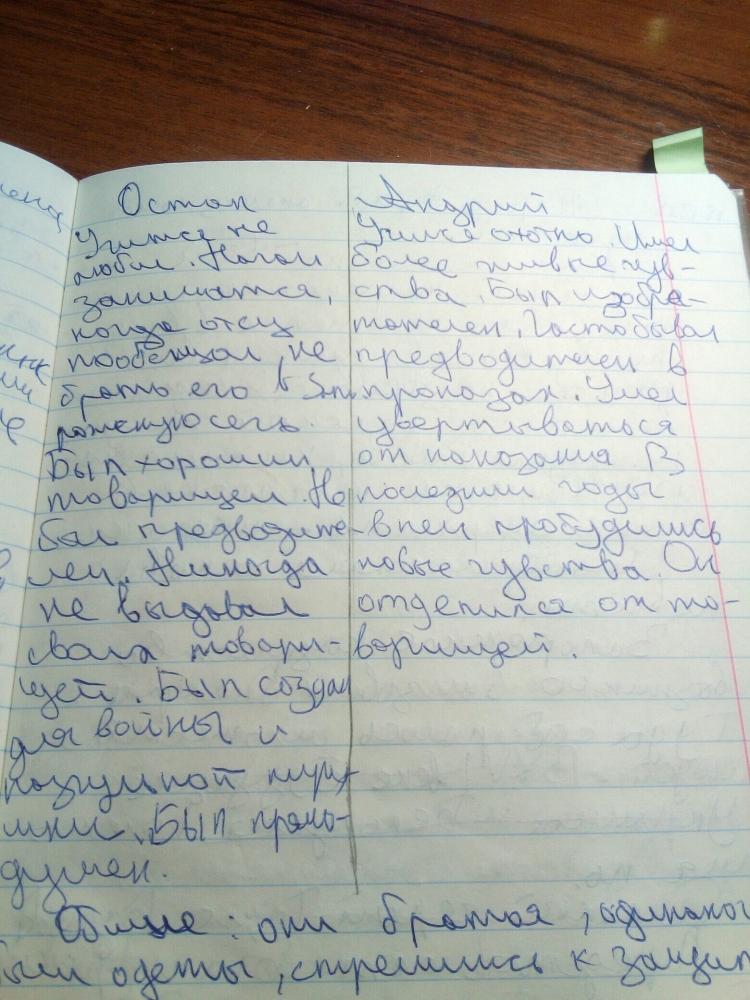 Остап
Учится не
любил. Начал
заниматся,
когда отец
пообещал, не
брать его в Запо
рожскую сечь.
Был хорошим
товарищем. Не
был предводите-
лем. Никогда
не выдавал
своих товари-
щей. Был создан
для войны и
разгульной пиру
шки. Был прямо-
душен.
Андрий
Учился охотно. Имел
более живые чув-
ства. Был изобре-
тателен. Часто бывал
предводителем в
проказах. Умел
увертываться
от наказания. В
последние годы
в нем пробудились
новые чувства. Он
отделился от то-
варищей.
Общее: они братья, одинаков
были одеты, стремились к защит